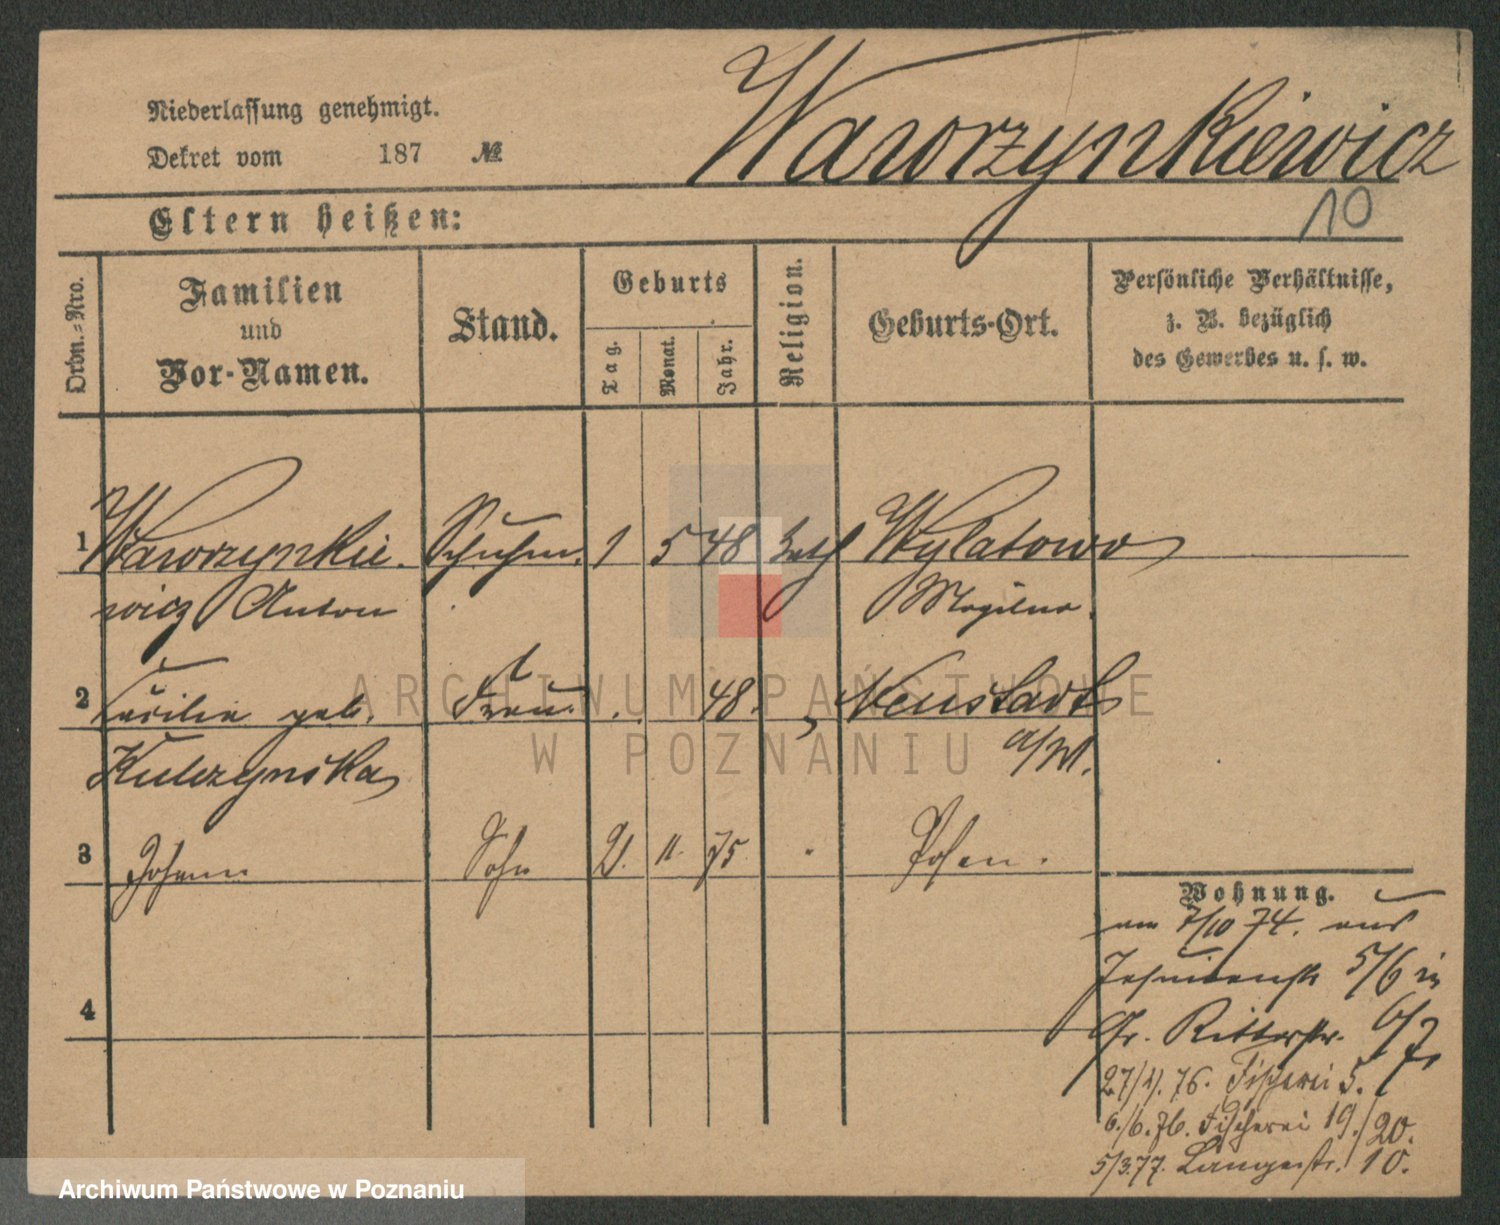 Wawrzynkiewicz
Niederlassung genehmigt.
Dekret vom 187 №
10
Eltern heißen:
Ordn.-Nro.
Familien
und
Vor-Namen.
Stand.
Geburts
Tag.
Monat.
Jahr.
Religion.
Geburts-Ort.
Persönliche Verhältnisse,
z. B. bezüglich
des Gewerbes u. s. w.
1 Wawrzynkie- Schuhm. 1 5 48 kath Wylatowo
wicz Anton Mogilno.
2 Cäcilie geb. Frau 48. Neustadt
Kulczynska a/W.
3 Johann Sohn 2. 11. 75 Posen.
4
Wohnung.
am 7/10 74. aus
Jesuitenstr 5/6 in
Gr. Ritterstr. 6/7.
27/4. 76. Fischerei 5.
6./6. 76. Fischerei 19./20.
5/3.77. Langestr. 10.
ARCHIWUM PAŃSTWOWE
W POZNANIU
Archiwum Państwowe w Poznaniu